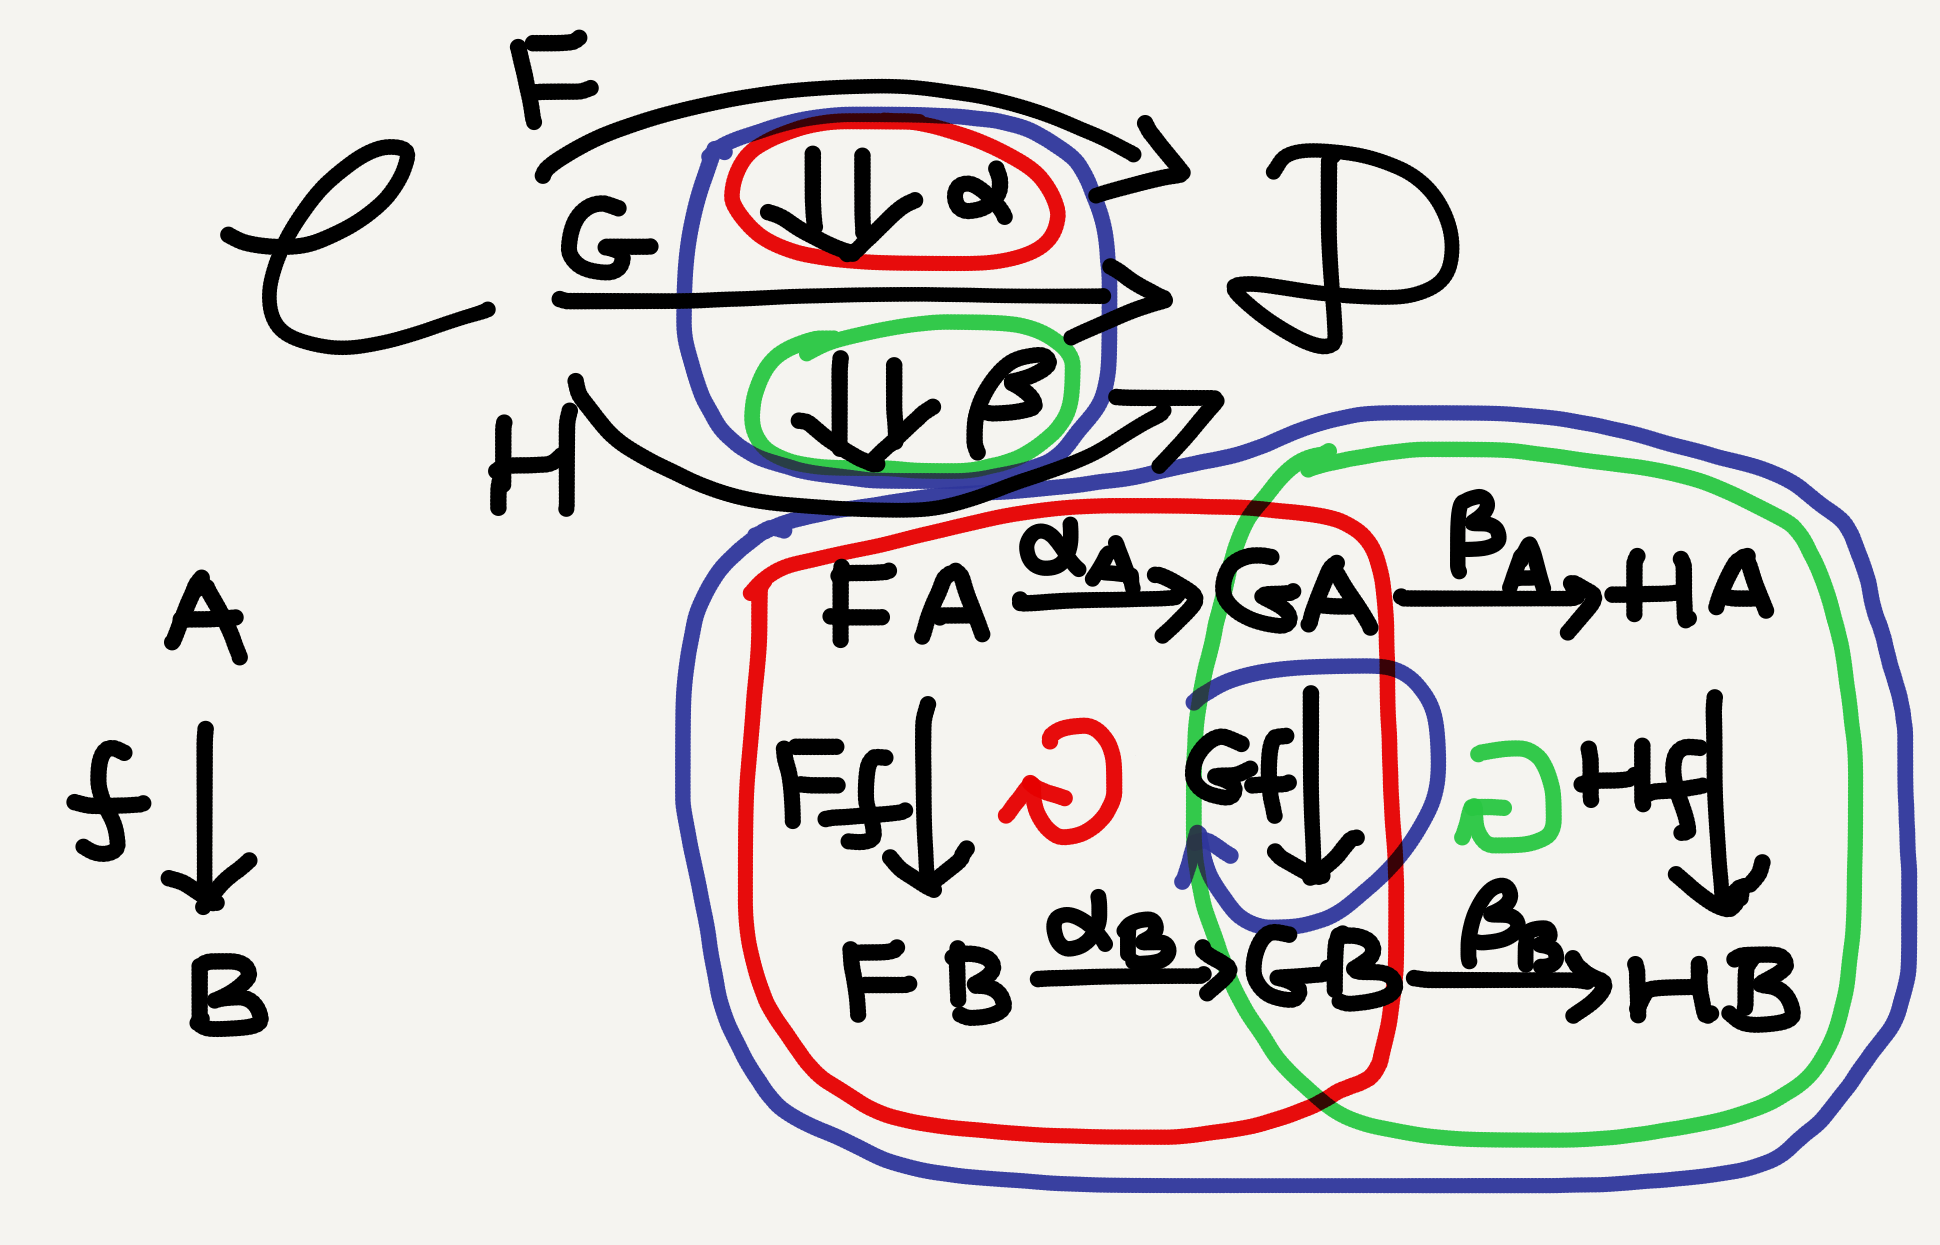 F
C G α D
H β
A FA αA GA βA HA
f Ff Gf Hf
B FB αB GB βB HB